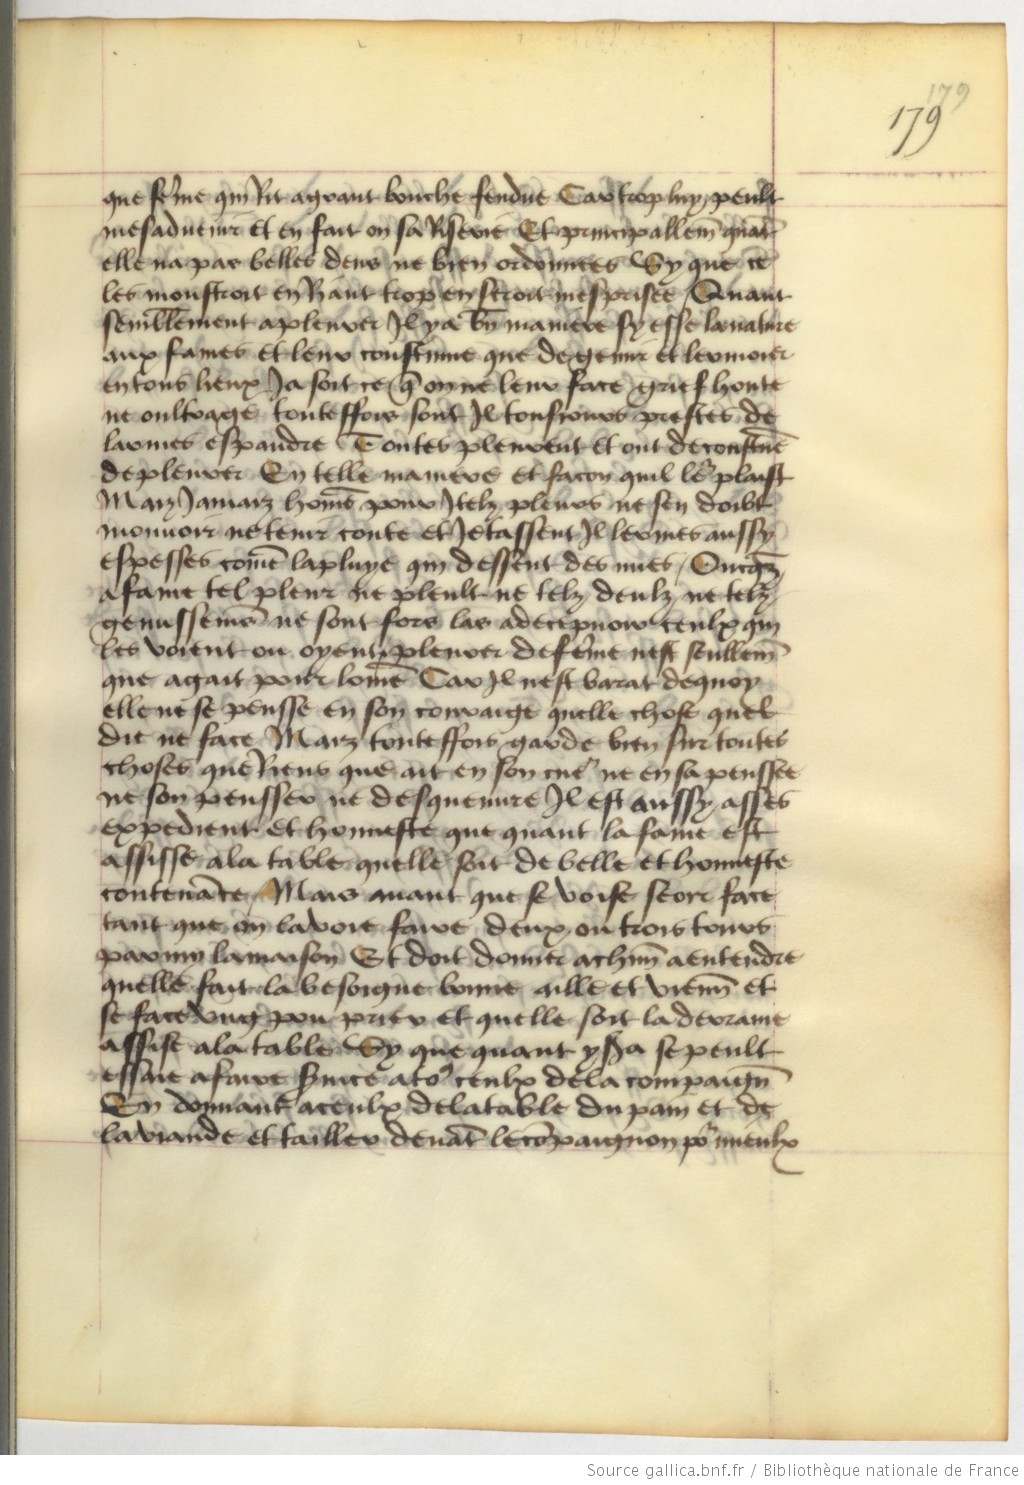 179
179
que fe͂me qui Rit ayant bouche fendue Car trop luy peult
mesaduenir Et en fait on sa Riserie Et principallem̃ quãt
elle na pas belles dens ne bien ordonnees Sy que ce
les monstroit en Riant trop en seroit mesprisee / Quant
semblẽment a plourer Il y a bñ maniere sy esse la nature
aux fames et leur coustume que de gemir et lermoier
en tous lieux Ja soit ce q̃ on ne leur face grief honte
ne oultrage toutessfois sont Il tousiours prestes de
larmes espandre Toutes pleurent et ont de constũe
de pleurer En telle maniere et facon quil le᷑ plaist
Marz Jamarz home͂ pour Itelz pleurs ne sen doibt
mouuoir ne tenir conte et Jetassent Il lermes aussy
espesses come͂ la pluye qui dessent des nues / Oncq̃z
a fame tel pleur ne pleult ne telz deulz ne telz
gemissemẽs ne sont fors las a decepuoir ceulx qui
les voient ou oyent pleurer de fe͂me nest seullem̃
que agait pour lome͂ Car Il nest barat de quoy
elle ne se pensse en son couraige quelle chose quel
die ne face Marz toutesffois garde bien sur toutes
choses que Riens que ait en son cue᷑ ne en sa penssee
ne son pensser ne desqueuure Il est aussy asses
expedient et honneste que quant la fame est
assisse a la table quelle soit de belle et honneste
contenãce / Mais auant que se voise seoir face
tant que on la voie faire deux ou trois tours
par my la maison Et doit donner a chũn a entendre
quelle fait la besoigne bonne aille et viem̃ et
se face vng pou prier et quelle soit la derraine
assise a la table Sy que quant y sa se peult
essaie a faire seruice a to9 ceulx de la compaigñ
En donnant a ceulx de la table du pain et de
la viande et tailler deuãt le cõpaignon po᷑ mieulx
Source gallica.bnf.fr / Bibliothèque nationale de France